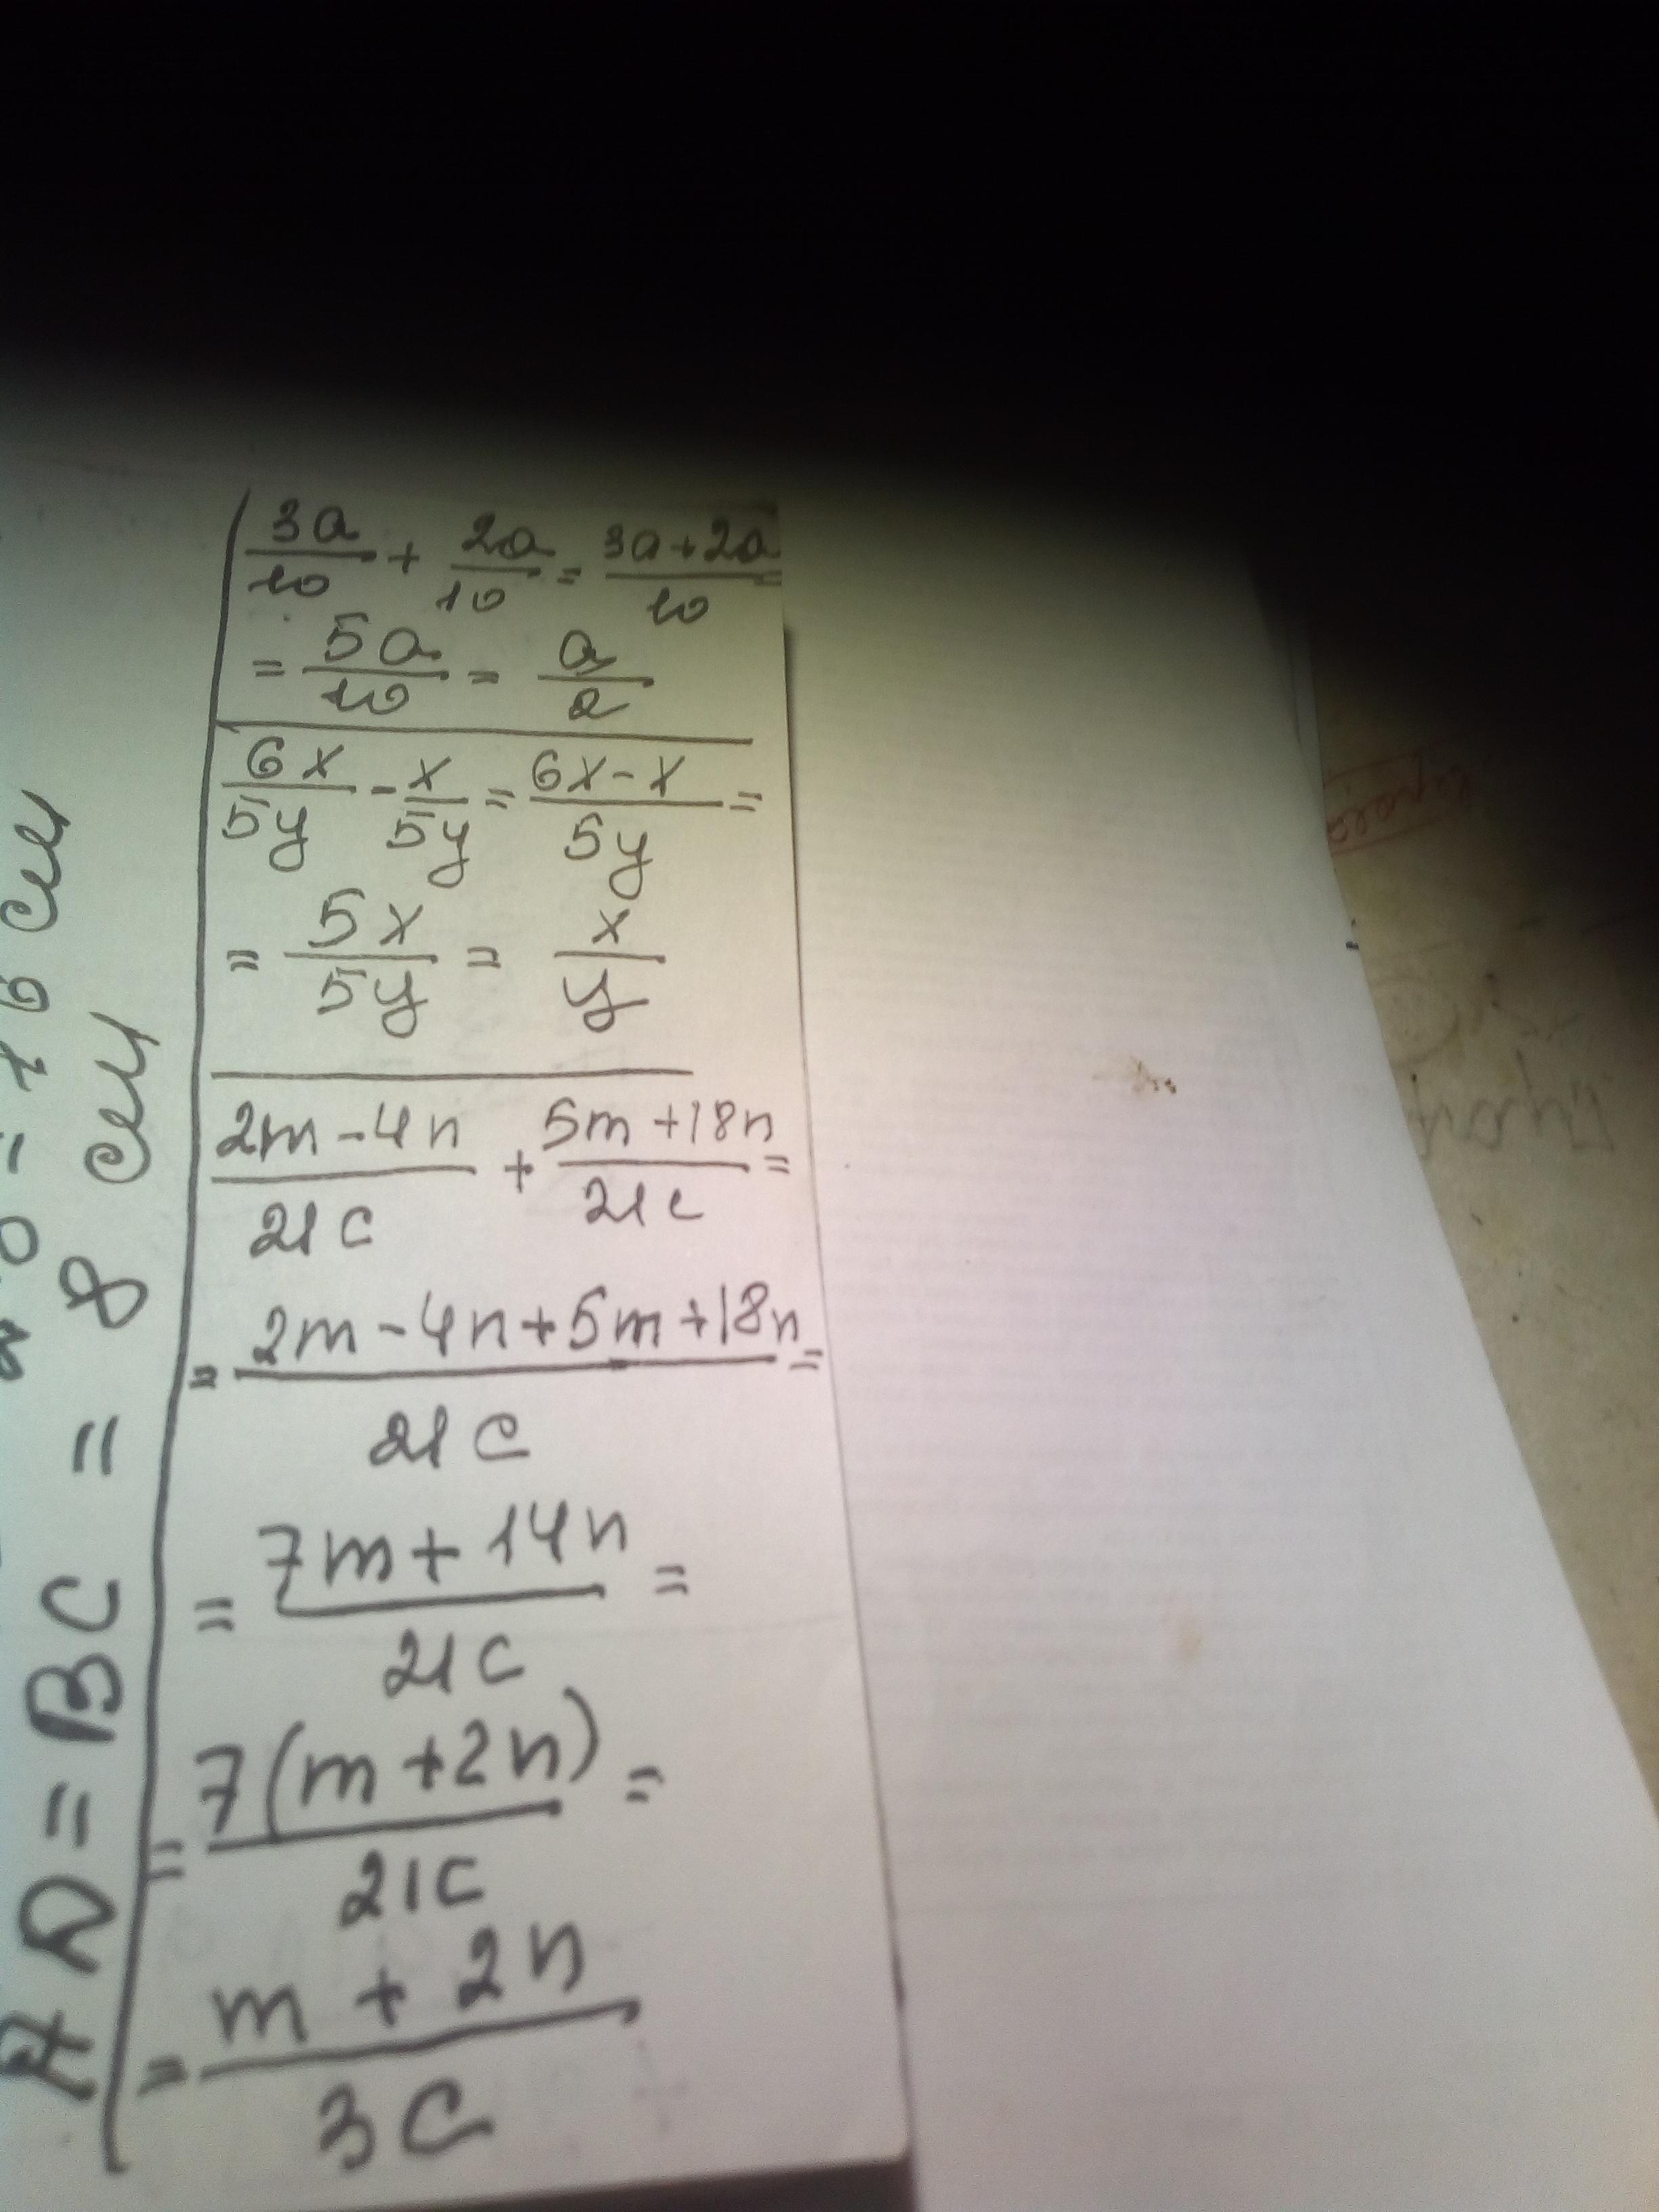 3a/10 + 2a/10 = 3a+2a/10 =
= 5a/10 = a/2
6x/5y - x/5y = 6x-x/5y =
= 5x/5y = x/y
2m-4n/21c + 5m+18n/21c =
= 2m-4n+5m+18n/21c =
= 7m+14n/21c =
= 7(m+2n)/21c =
= m+2n/3c
AD = BC = 8 см